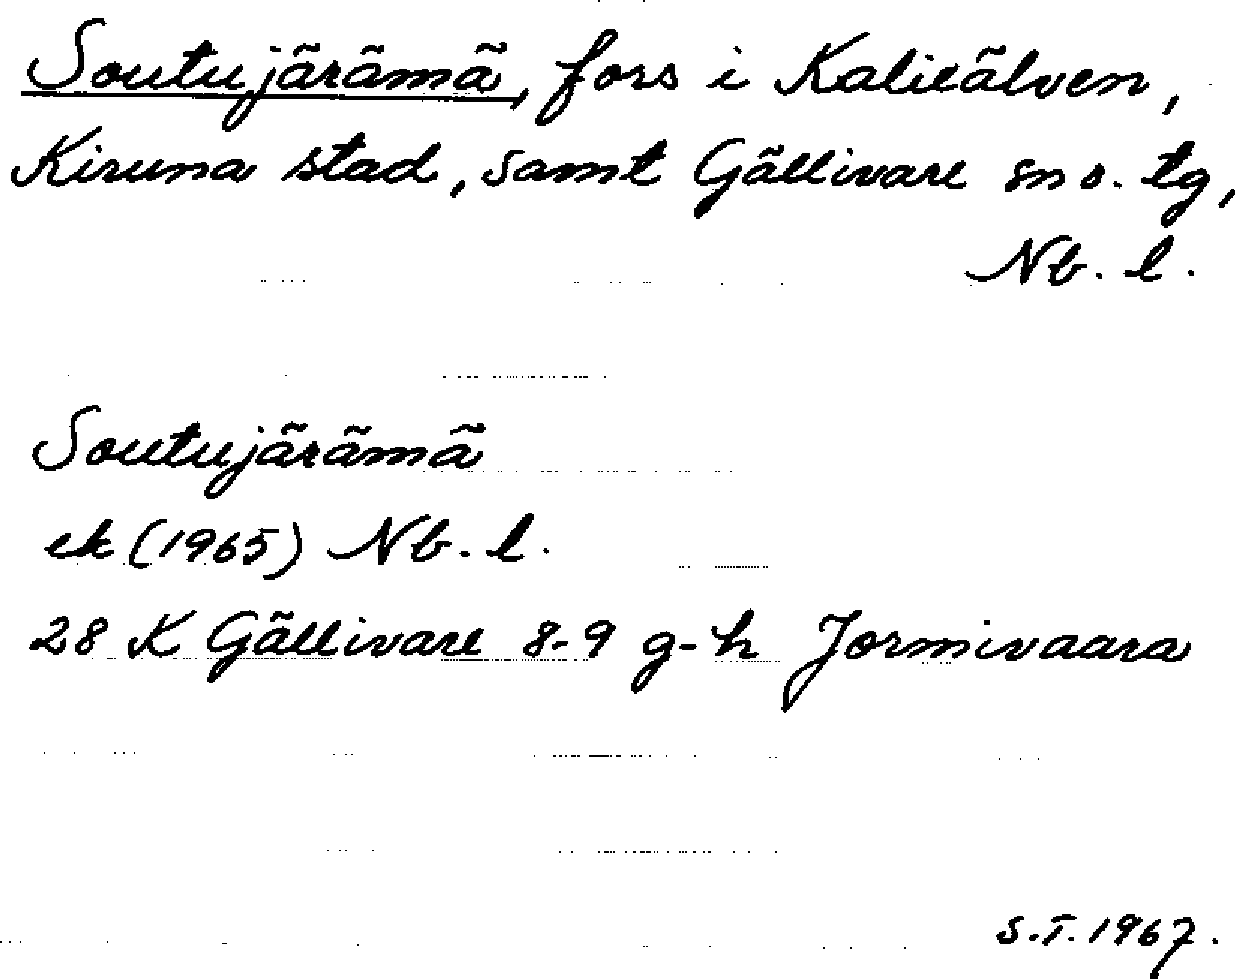 Soutujärämä, fors i Kalixälven,
Kiruna stad, samt Gällivare sn o. tg,
Nb. l.
Soutujärämä
ek (1965) Nb. l.
28 K Gällivare 8-9 g-h Jormivaara
S.T. 1967.